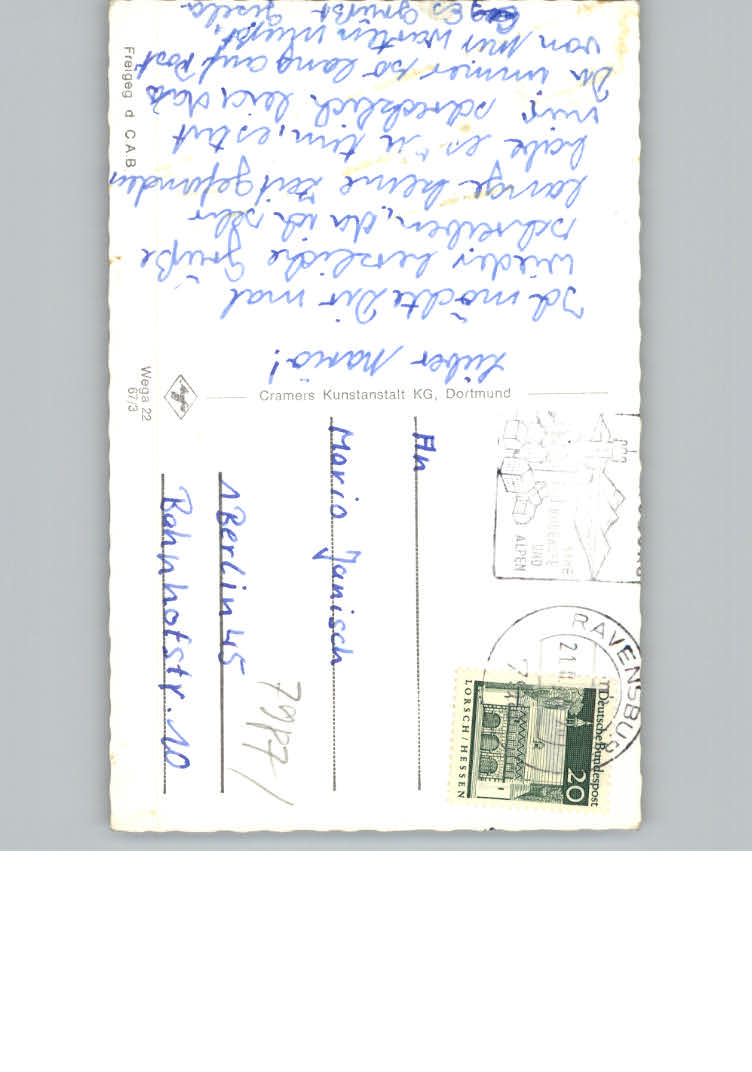 Lieber Mario!
Ich möchte Dir mal
wieder herzliche Grüße
schreiben, da ich sehr
lange keine Zeit gefunden
habe es zu tun, es tut
mir schrecklich leid das
Du immer so lang auf Post
von mir warten mußt,
Es grüßt Gisela
Freigeg d C.A.B
Wega 22
67/3
Cramers Kunstanstalt KG, Dortmund
An
Mario Janisch
1 Berlin 45
Bahnhofstr. 10
UND
ALPEN
RAVENSBU
21.
Deutsche Bundespost
20
LORSCH/HESSEN